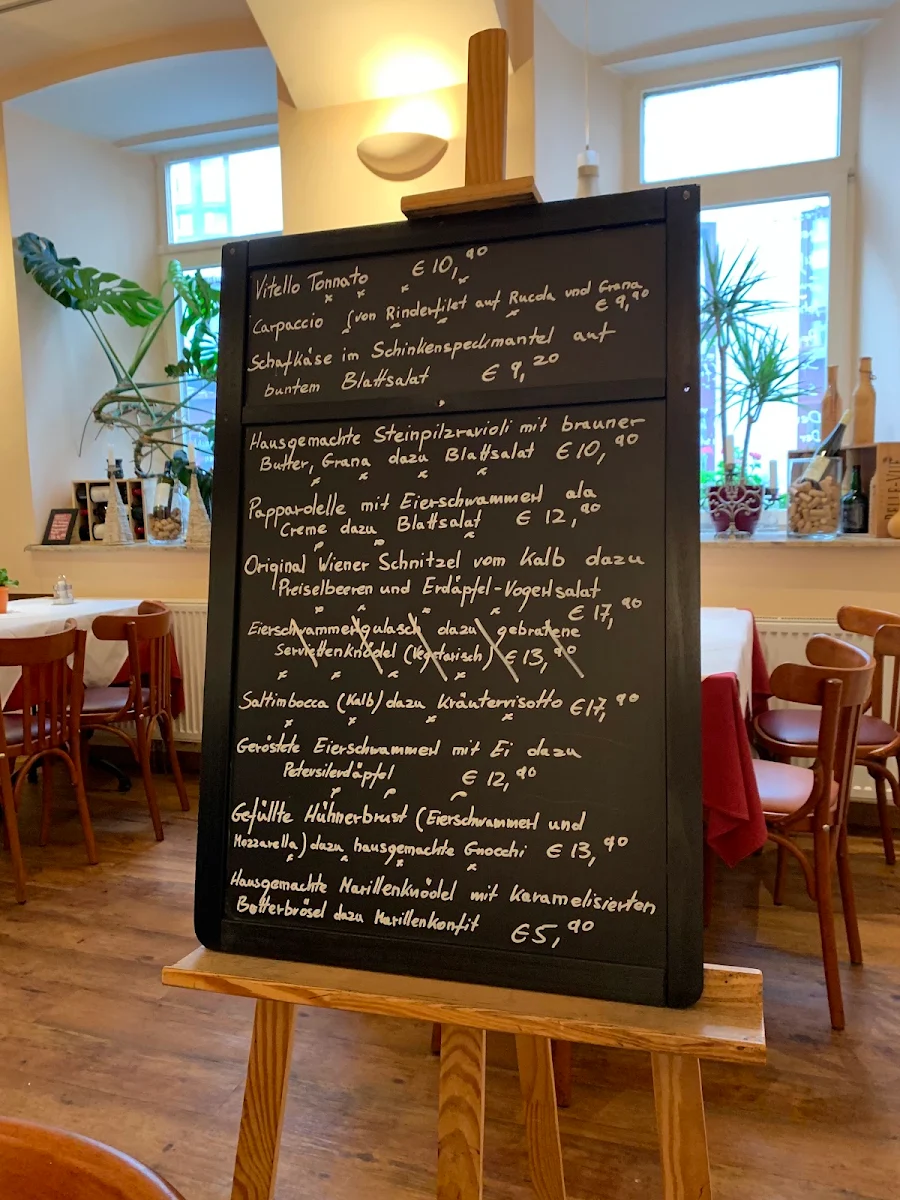 Vitello Tonnato € 10,90
Carpaccio (von Rinderfilet auf Rucola und Grana
€ 9,90
Schafkäse im Schinkenspeckmantel auf
buntem Blattsalat € 9,20
Hausgemachte Steinpilzravioli mit brauner
Butter, Grana dazu Blattsalat € 10,90
Papparolelle mit Eierschwammerl ala
Creme dazu Blattsalat € 12,90
Original Wiener Schnitzel vom Kalb dazu
Preiselbeeren und Erdäpfel-Vogerlsalat
€ 17,90
Eierschwammerlgulasch dazu gebratene
Serviettenknödel (Vegetarisch) € 13,90
Saltimbocca (Kalb) dazu Kräuterrisotto € 17,90
Geröstete Eierschwammerl mit Ei dazu
Petersilerdäpfel € 12,90
Gefüllte Hühnerbrust (Eierschwammerl und
Mozzarella) dazu hausgemachte Gnocchi € 13,90
Hausgemachte Marillenknödel mit karamelisierten
Butterbrösel dazu Marillenkonfit € 5,90